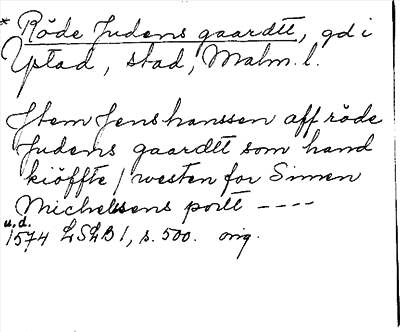 * Röde Judens gaardtt, gd i
Ystad, stad, Malm. l.
Jtem Jens hanssen aff röde
Judens gaardtt som hand
kiöffte / westen for Simen
Michelsens portt ----
u.d.
1574 LSLB 1, s. 500. orig.